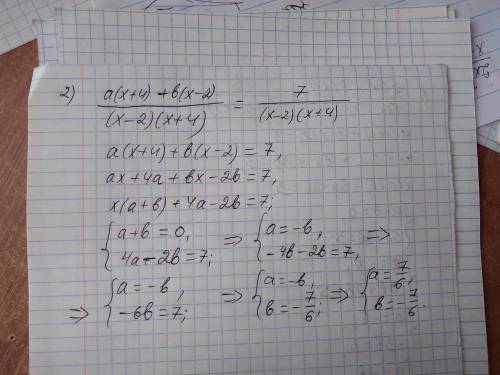 2) (a(x+4)+b(x-2))/((x-2)(x+4)) = 7/((x-2)(x+4))
a(x+4)+b(x-2)=7,
ax+4a+bx-2b=7,
x(a+b)+4a-2b=7;
{a+b=0, 4a-2b=7; ⇒ {a=-b, -4b-2b=7, ⇒
⇒ {a=-b, -6b=7; ⇒ {a=-b, b=-7/6; ⇒ {a=7/6, b=-7/6.